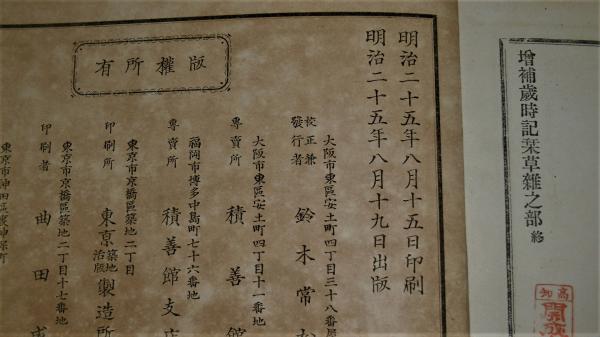 增補歲時記栞草雜之部 終
高知
開發
明治二十五年八月十五日印刷
明治二十五年八月十九日出版
版權所有
大阪市東區安土町四丁目三十八番屋
校正兼
發行者
鈴木常松
大阪市東區安土町四丁目十一番地
專賣所
積善館
福岡市博多中島町七十六番地
專賣所
積善館支店
東京市京橋區築地二丁目
印刷所
東京築地活版製造所
東京市京橋區築地二丁目十七番地
印刷者
曲田
東京市神田區裏神保町